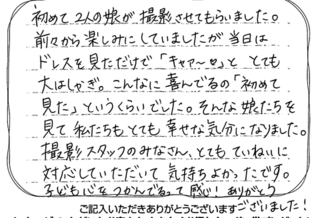 初めて2人の娘が撮影させてもらいました。
前々から楽しみにしていましたが当日は
ドレスを見ただけで「キャア〜♡」と とても
大はしゃぎ。こんなに喜んでるの「初めて
見た」というくらいでした。そんな娘たちを
見て 私たちも とても 幸せな気分になりました。
撮影スタッフのみなさん、とても ていねいに
対応していただいて 気持ちよかったです。
子ども心をつかんでるって感じ! ありがとう
ございました!
ご記入いただきありがとうございます